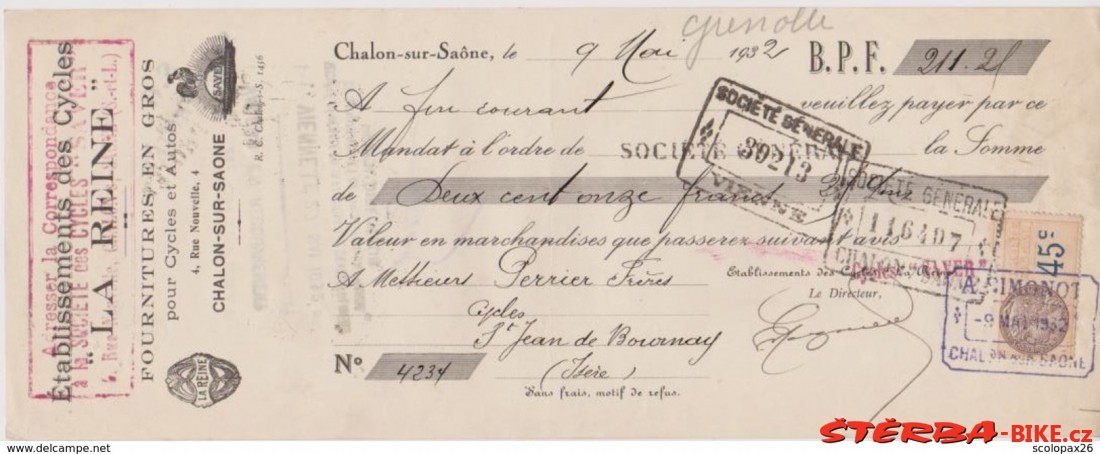 Grenoble
Chalon-sur-Saône, le 9 Mai 1932 B. P. F. 211.25
A fin courant veuillez payer par ce
Mandat à l'ordre de SOCIÉTÉ GÉNÉRALE la Somme
de Deux cent onze francs
Valeur en marchandises que passerez suivant avis
A Messieurs Perrier Frères
Cycles
St Jean de Bournay
(Isère)
No 4234
Sans frais, motif de refus.
Établissements des Cycles
Le Directeur,
SOCIÉTÉ GÉNÉRALE
39213
VIENNE
SOCIÉTÉ GÉNÉRALE
116407
CHALON
45c
A. SIMONOT
-9 MAI 1932
CHALON-SUR-SAONE
Adresser la Correspondance
à la SOCIÉTÉ des CYCLES SAYER
4, Rue
Établissements des Cycles
"LA REINE"
FOURNITURES EN GROS
pour Cycles et Autos
4, Rue Nouvelle, 4
CHALON-SUR-SAONE
R. C. Chalon-s-S. 1456
SAYER
LA REINE
ŠTĚRBA-BIKE.cz
www.delcampe.net
scolopax26